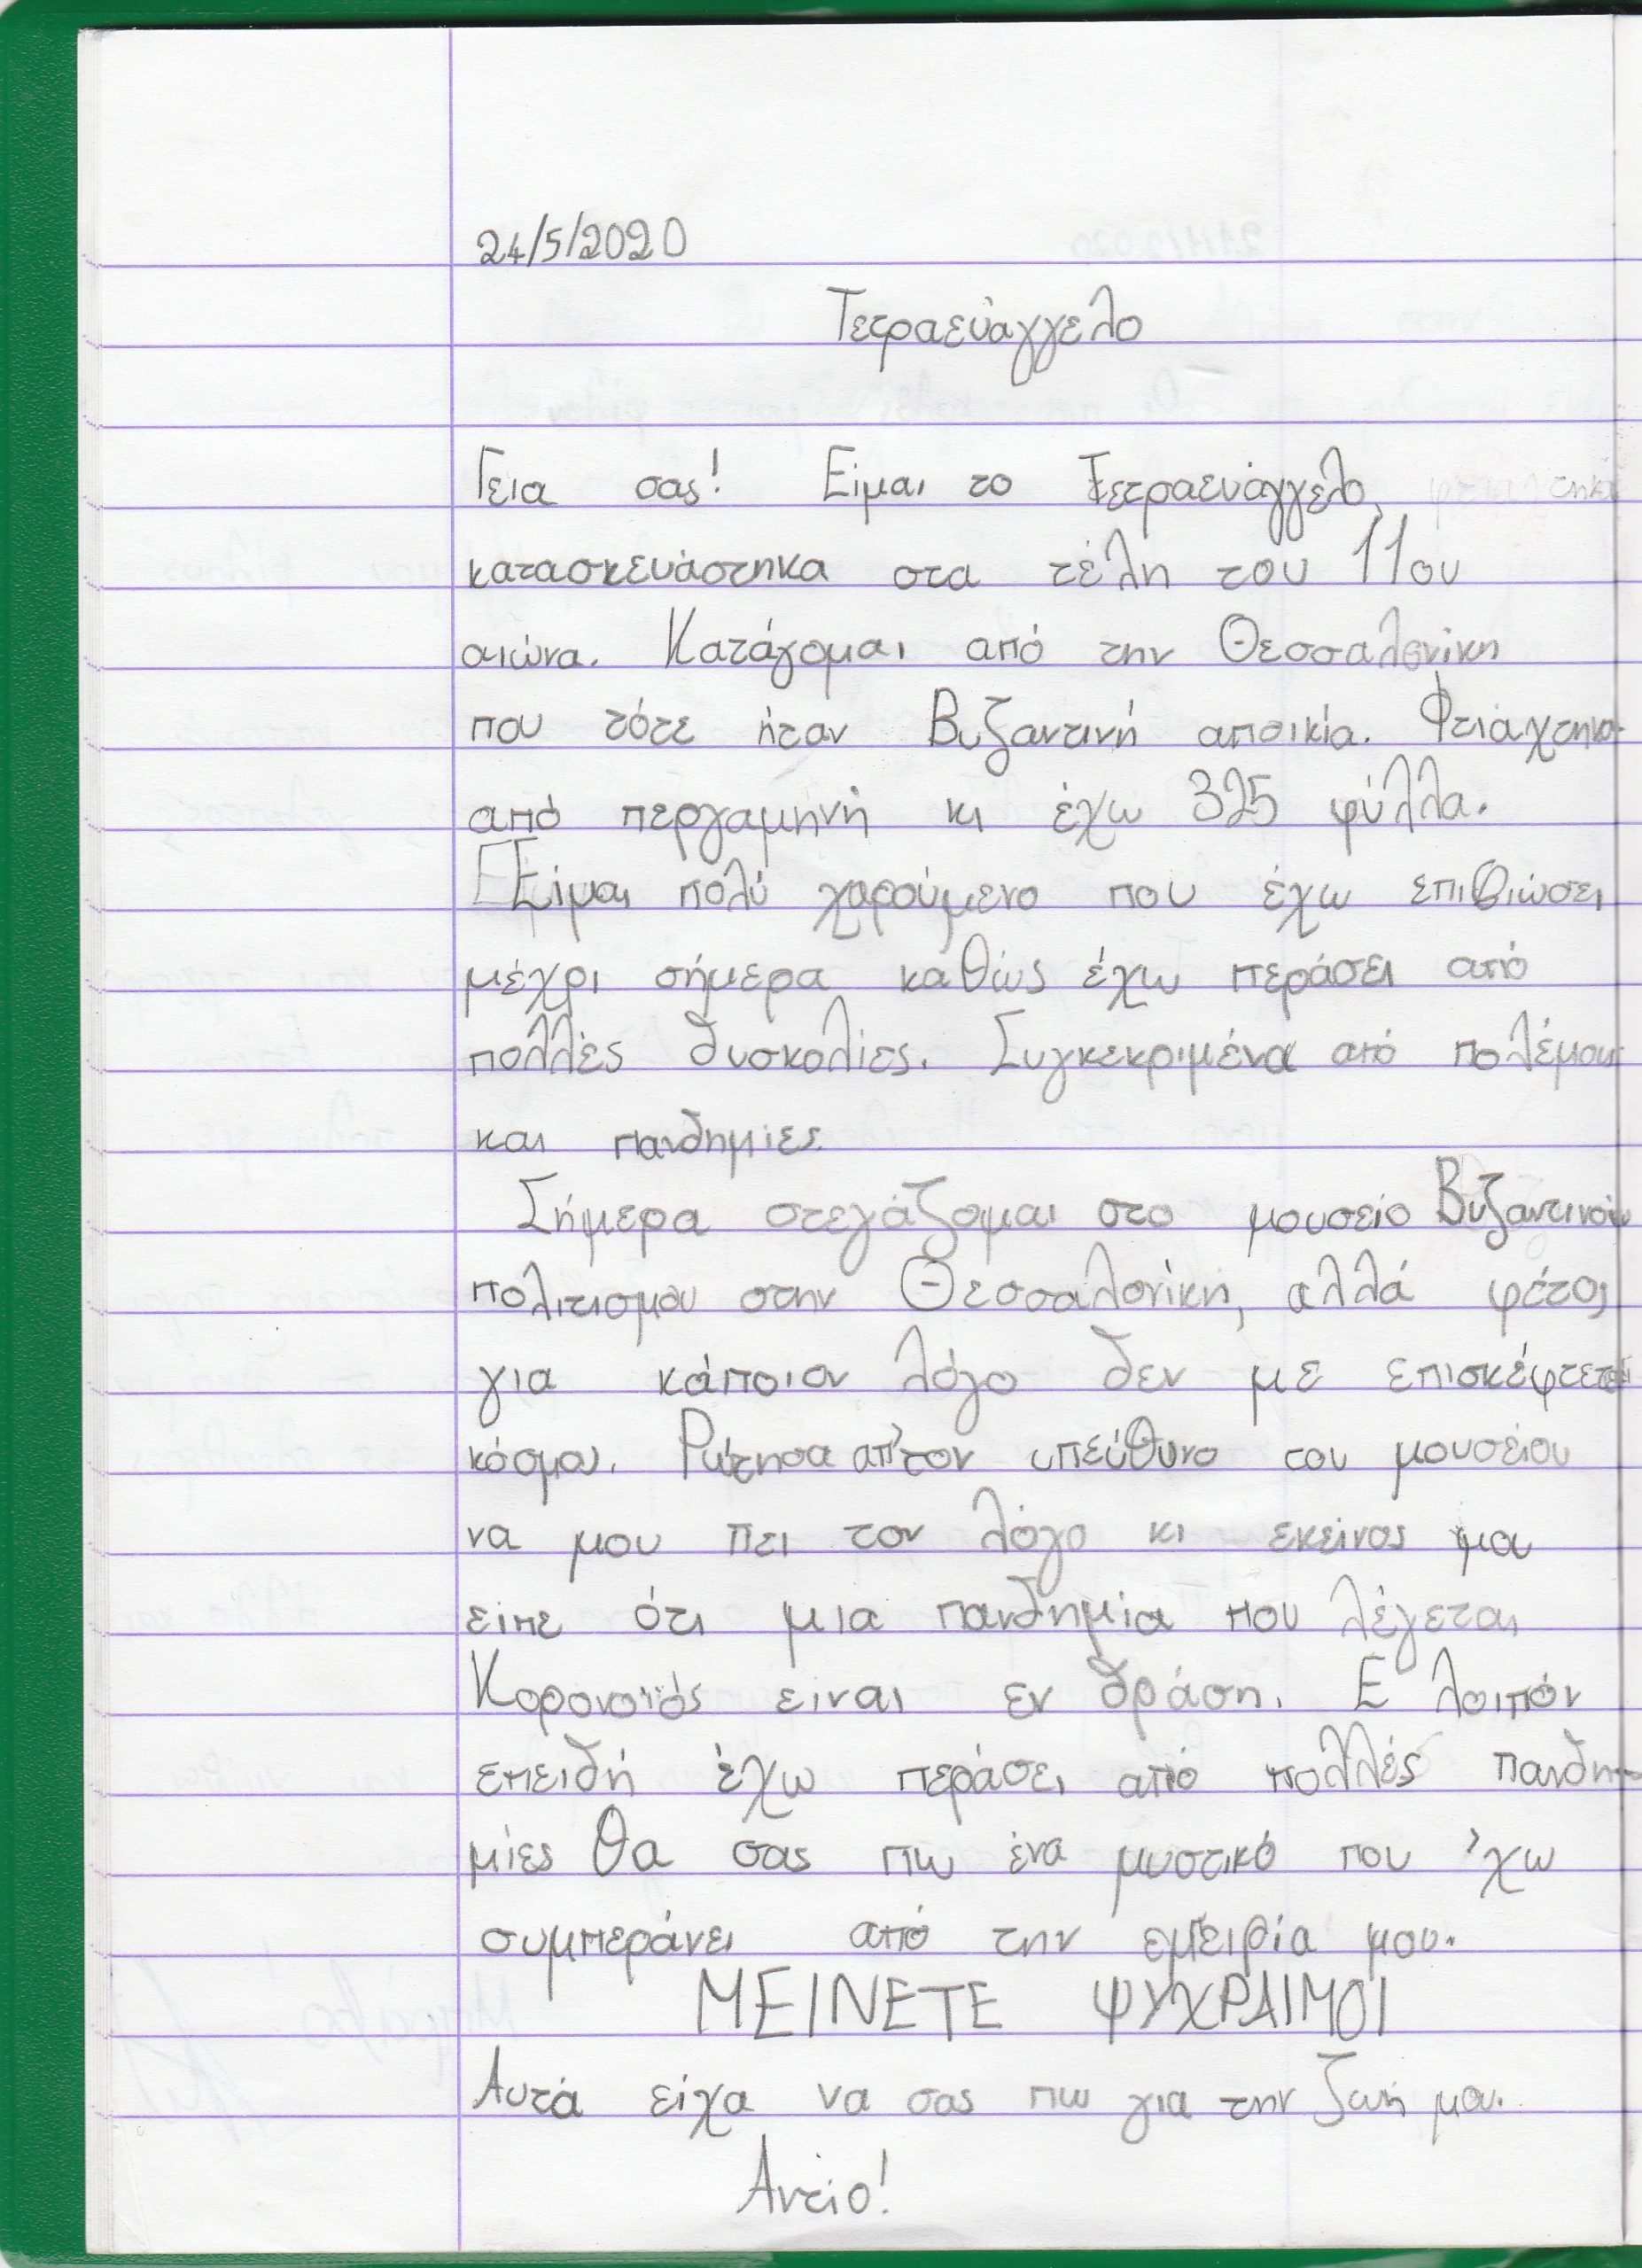 24/5/2020
Τετραευάγγελο
Γεια σας! Είμαι το Τετραευάγγελο,
κατασκευάστηκα στα τέλη του 11ου
αιώνα. Κατάγομαι από την Θεσσαλονίκη
που τότε ήταν Βυζαντινή αποικία. Φτιάχτηκα
από περγαμηνή κι έχω 325 φύλλα.
Είμαι πολύ χαρούμενο που έχω επιβιώσει
μέχρι σήμερα καθώς έχω περάσει από
πολλές δυσκολίες. Συγκεκριμένα από πολέμους
και πανδημίες.
Σήμερα στεγάζομαι στο μουσείο Βυζαντινού
πολιτισμου στην Θεσσαλονίκη, αλλά φέτος
για κάποιον λόγο δεν με επισκέφτεται
κόσμος. Ρώτησα απ'τον υπεύθυνο του μουσείου
να μου πει τον λόγο κι εκείνος μου
είπε ότι μια πανδημία που λέγεται
Κορονοϊός ειναι εν δράση. Ε λοιπόν
επειδή έχω περάσει από πολλές πανδη-
μίες θα σας πω ένα μυστικό που 'χω
συμπεράνει από την εμπειρία μου.
ΜΕΙΝΕΤΕ ΨΥΧΡΑΙΜΟΙ
Αυτά είχα να σας πω για την ζωή μου.
Αντίο!